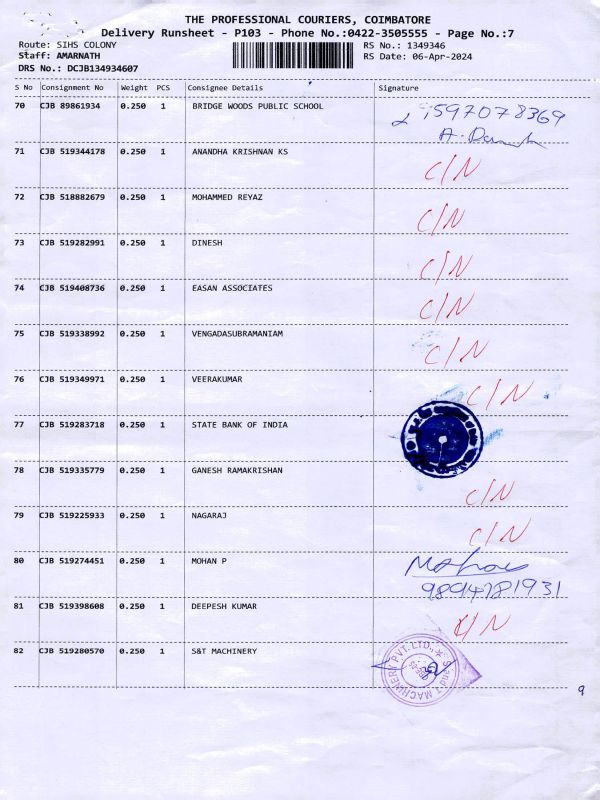 THE PROFESSIONAL COURIERS, COIMBATORE
Delivery Runsheet - P103 - Phone No.:0422-3505555 - Page No.:7
Route: SIHS COLONY RS No.: 1349346
Staff: AMARNATH RS Date: 06-Apr-2024
DRS No.: DCJB134934607
S No Consignment No Weight PCS Consignee Details Signature
70 CJB 89861934 0.250 1 BRIDGE WOODS PUBLIC SCHOOL 597078369
71 CJB 519344178 0.250 1 ANANDHA KRISHNAN KS C/N
72 CJB 518882679 0.250 1 MOHAMMED REYAZ C/N
73 CJB 519282991 0.250 1 DINESH C/N
74 CJB 519408736 0.250 1 EASAN ASSOCIATES C/N
75 CJB 519338992 0.250 1 VENGADASUBRAMANIAM C/N
76 CJB 519349971 0.250 1 VEERAKUMAR C/N
77 CJB 519283718 0.250 1 STATE BANK OF INDIA
78 CJB 519335779 0.250 1 GANESH RAMAKRISHAN C/N
79 CJB 519225933 0.250 1 NAGARAJ C/N
80 CJB 519274451 0.250 1 MOHAN P
9894781931
81 CJB 519398608 0.250 1 DEEPESH KUMAR C/N
82 CJB 519280570 0.250 1 S&T MACHINERY
S and T MACHINERY PVT. LTD.
9